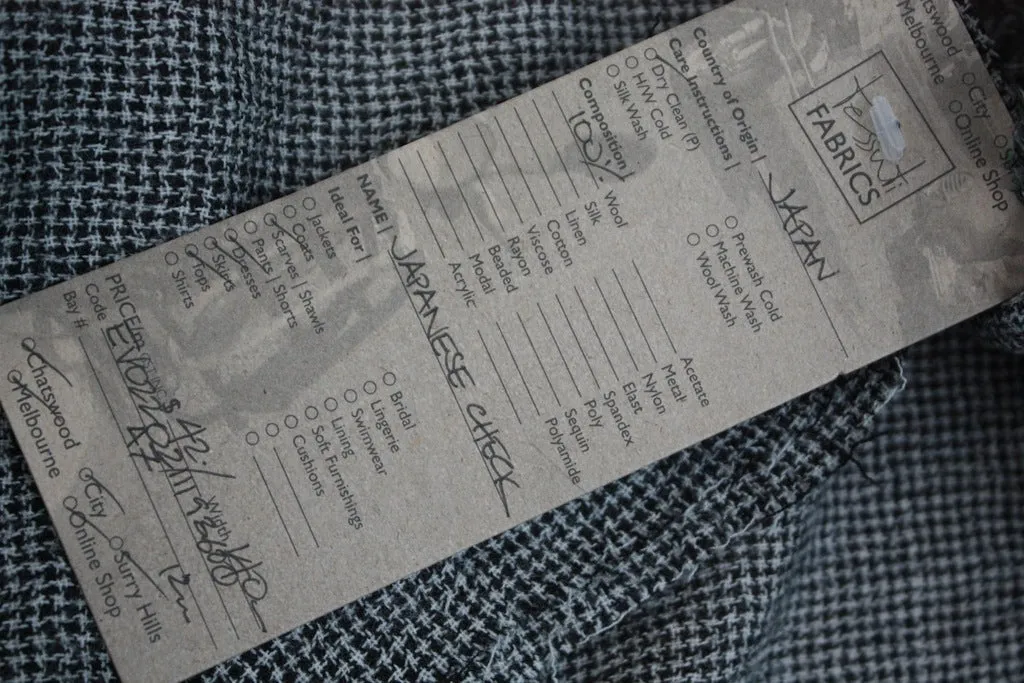 Tessuti
FABRICS
Country of Origin | JAPAN
Care Instructions |
Dry Clean (P)
H/W Cold
Silk Wash
Prewash Cold
Machine Wash
Wool Wash
Composition |
100% Wool
Silk
Linen
Cotton
Viscose
Rayon
Beaded
Modal
Acrylic
Acetate
Metal
Nylon
Elast
Spandex
Poly
Sequin
Polyamide
NAME | JAPANESE CHECK
Ideal For |
Jackets
Coats
Scarves | Shawls
Pants | Shorts
Dresses
Skirts
Tops
Shirts
Bridal
Lingerie
Swimwear
Lining
Soft Furnishings
Cushions
PRICE $42/ Width 140
Code
Bay #
12m
Chatswood
City
Surry Hills
Melbourne
Online Shop
City
Melbourne
Online Shop